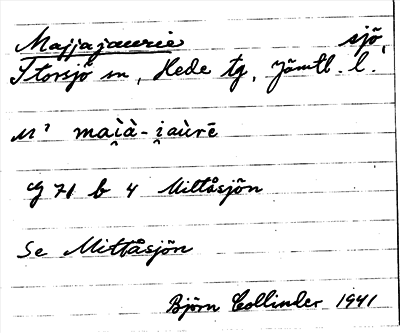 Majjajaurie sjö,
Storsjö sn, Hede tg, Jämtl. l.
M¹ mai̯à-i̯aùrē
G 71 b 4 Mittåsjön
Se Mittåsjön
Björn Collinder 1941